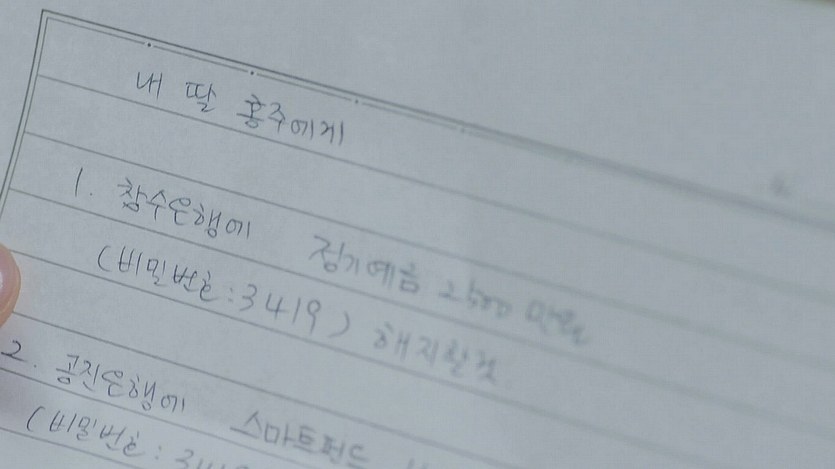 내 딸 홍주에게
1. 참수은행에 정기예금 2500 만원
(비밀번호:3419) 해지할것
2. 공진은행에 스마트펀드
(비밀번호: